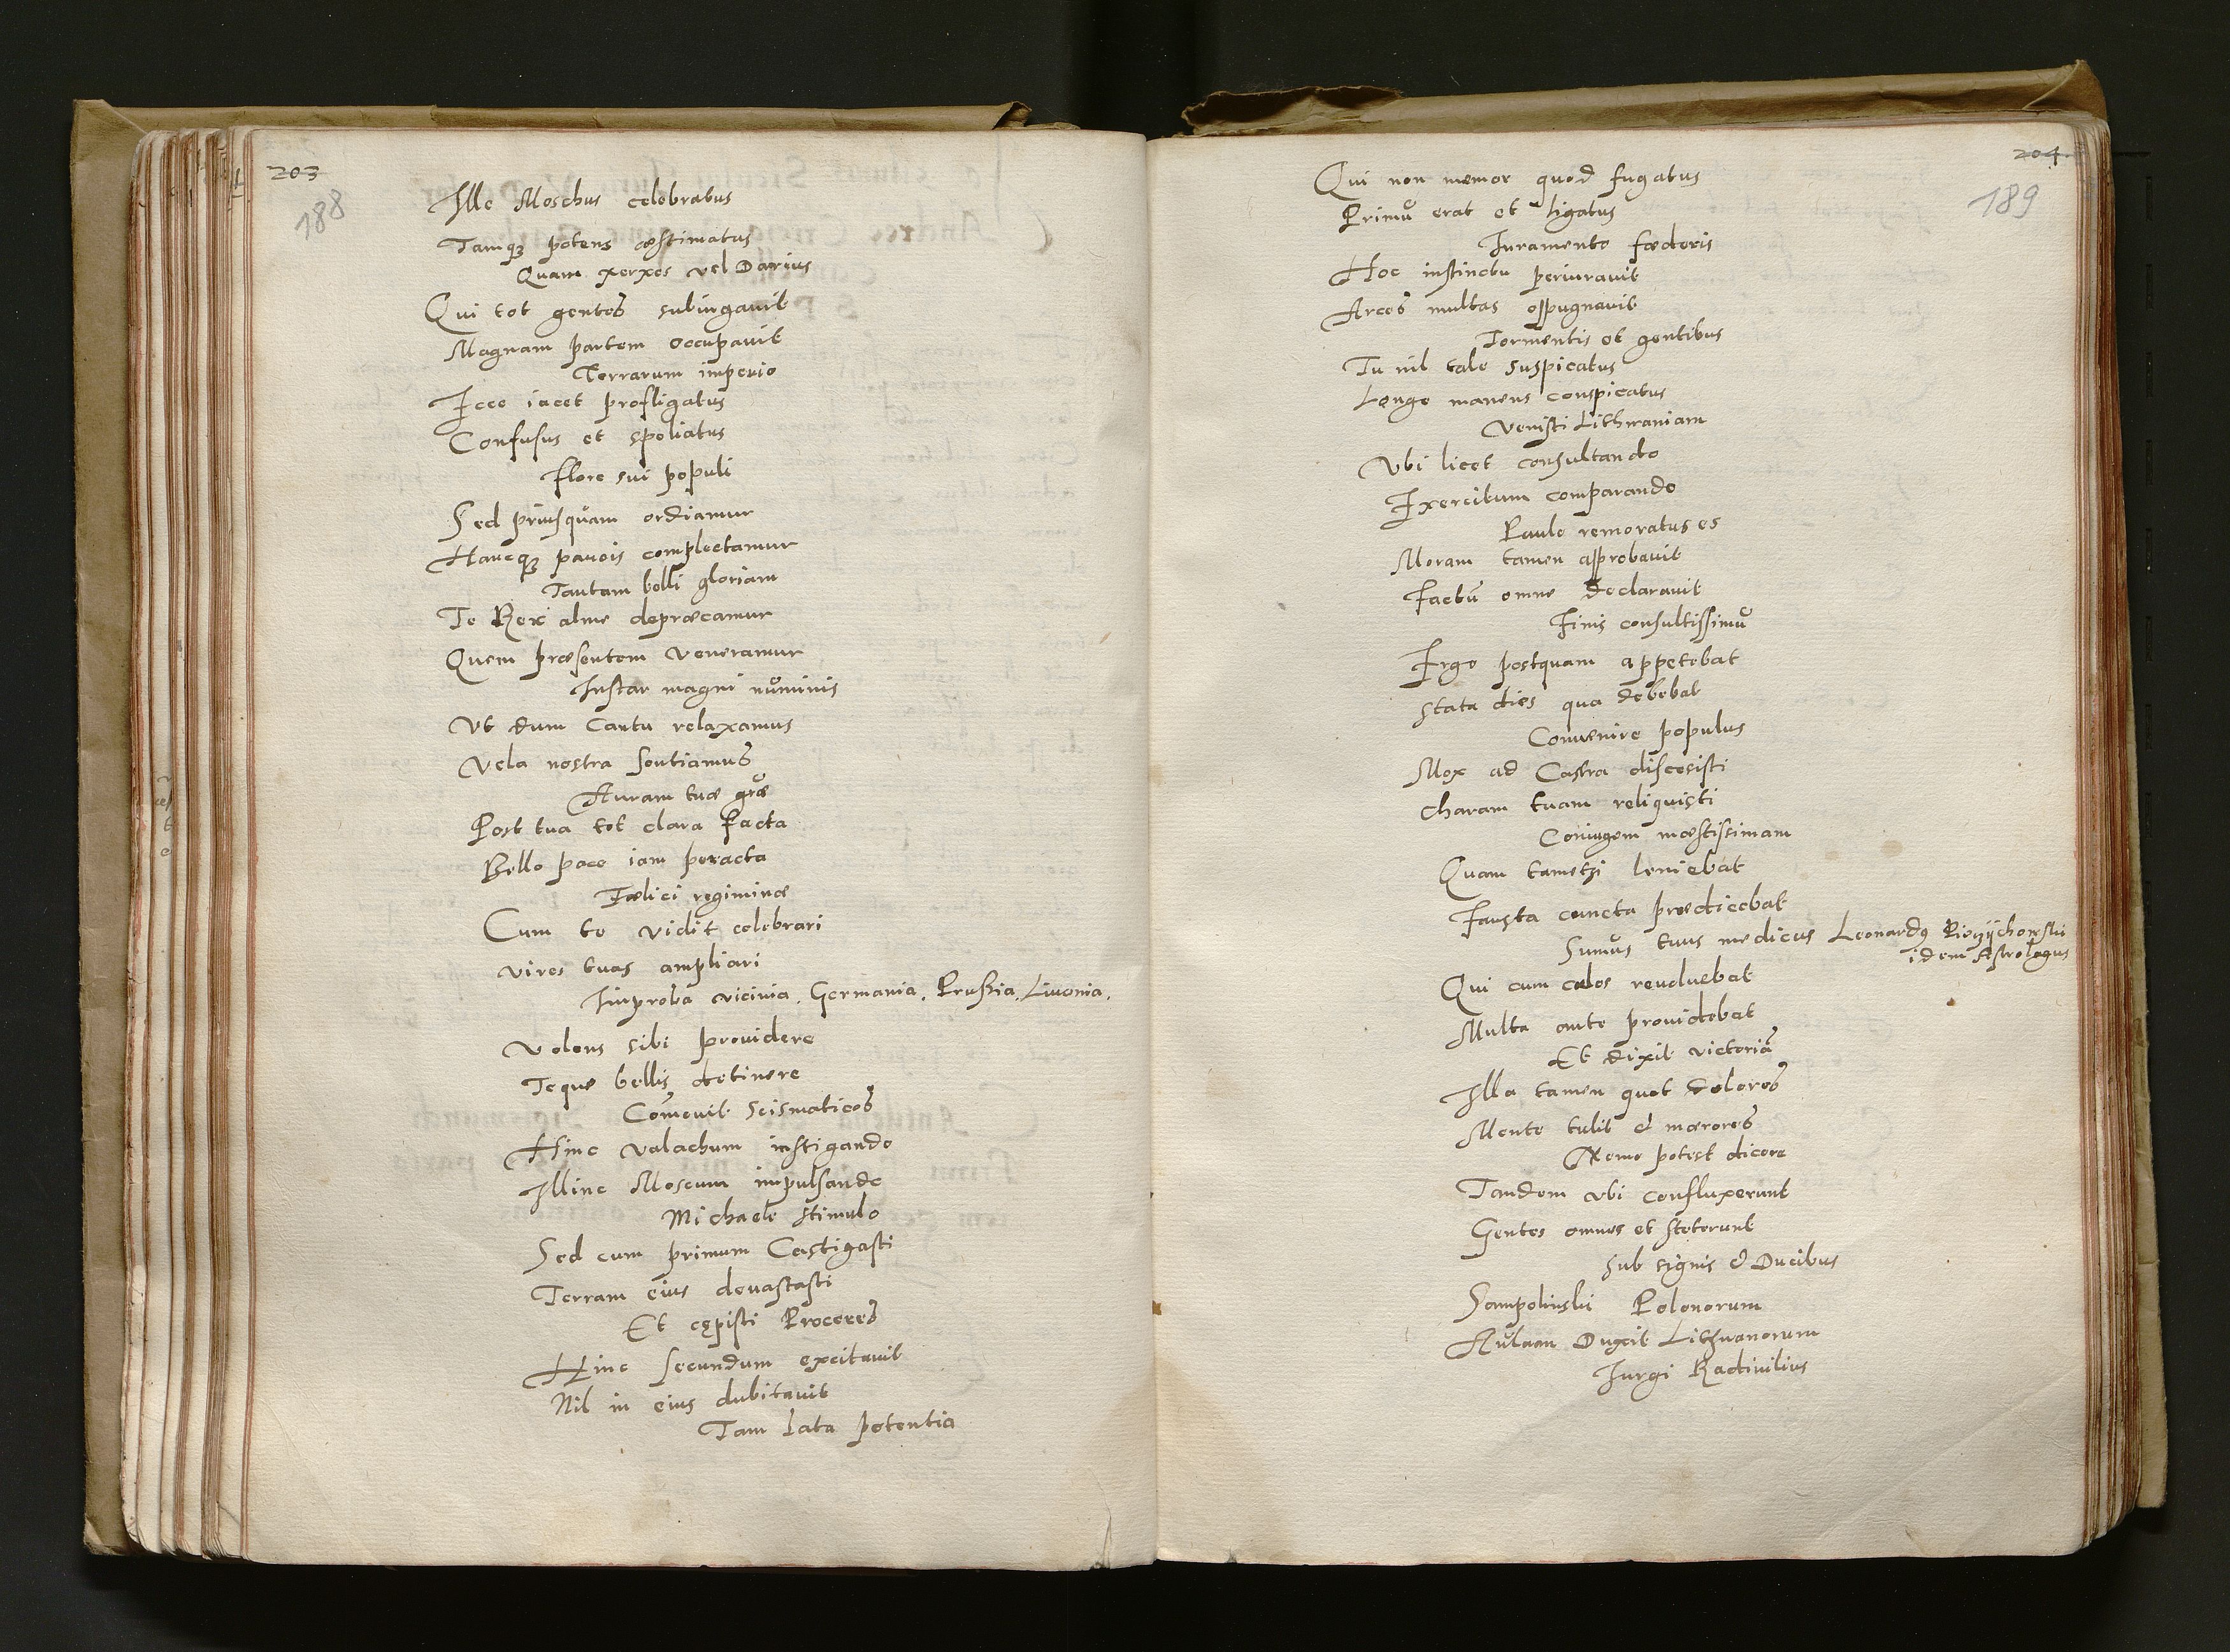 203
188
Ille Moschus celebratus
Tamq3 potens æstimatus
Quam xerxes vel Darius
Qui tot gentes subiugauit
Magnam partem occupauit
Terrarum imperio
Ecce iacet profligatus
Confusus et spoliatus
flore sui populi
Sed priusquam ordiamur
Hancq3 paucis complectamur
Tantam belli gloriam
Te Rex alme depræcamur
Quem præsentem veneramur
Instar magni nůminis
Vt dum Cantu relaxamus
Vela nostra sentiamus
Auram tuæ græ
Post tua tot clara facta
Bello pace iam peracta
Fælici regiminæ
Cum te vidit celebrari
vires tuas ampliari
Improba vicinia. Germania. Prussia. Liuonia.
Volens sibi prouidere
Teque bellis detinere
Cōmouit scismaticos
Hinc valachum instigando
Illinc Moscum impulsando
Michaele stimulo
Sed cum primum Castigasti
Terram eius deuastasti
Et cępisti Proceres
Hinc secundum excitauit
Nil in eius dubitauit
Tam lata potentia
204.
189
Qui non memor quod fugatus
Primů erat et ligatus
Iuramento fæderis
Hoc instinctu periurauit
Arces multas oppugnauit
Tormentis et gentibus
Tu nil tale suspicatus
Longe manens conspicatus
Venisti Lithwaniam
Vbi licet consultando
Exercitum comparando
Paulo remoratus es
Moram tamen approbauit
Factū omne declarauit
Finis consultissimů
Ergo postquam appetebat
Stata dies qua debebat
Conuenire populus
Mox ad Castra discesisti
Charam tuam reliquisti
Coniugem mæstissimam
Quam tametsi leniebat
Fausta cuncta prædicebat
Sumůs tuus medicus Leonardꝯ
idem Astrologus
Qui cum cælos reuoluebat
Multa ante prouidebat
Et dixit victoriā
Illa tamen quot dolores
Mente tulit & mærores
Nemo potest dicere
Tandem vbi confluxerunt
Gentes omnes et steterunt
Sub signis & Ducibus
Sampolinski Polonorum
Duxit Lithuanorum
Iurgi Radiuilius